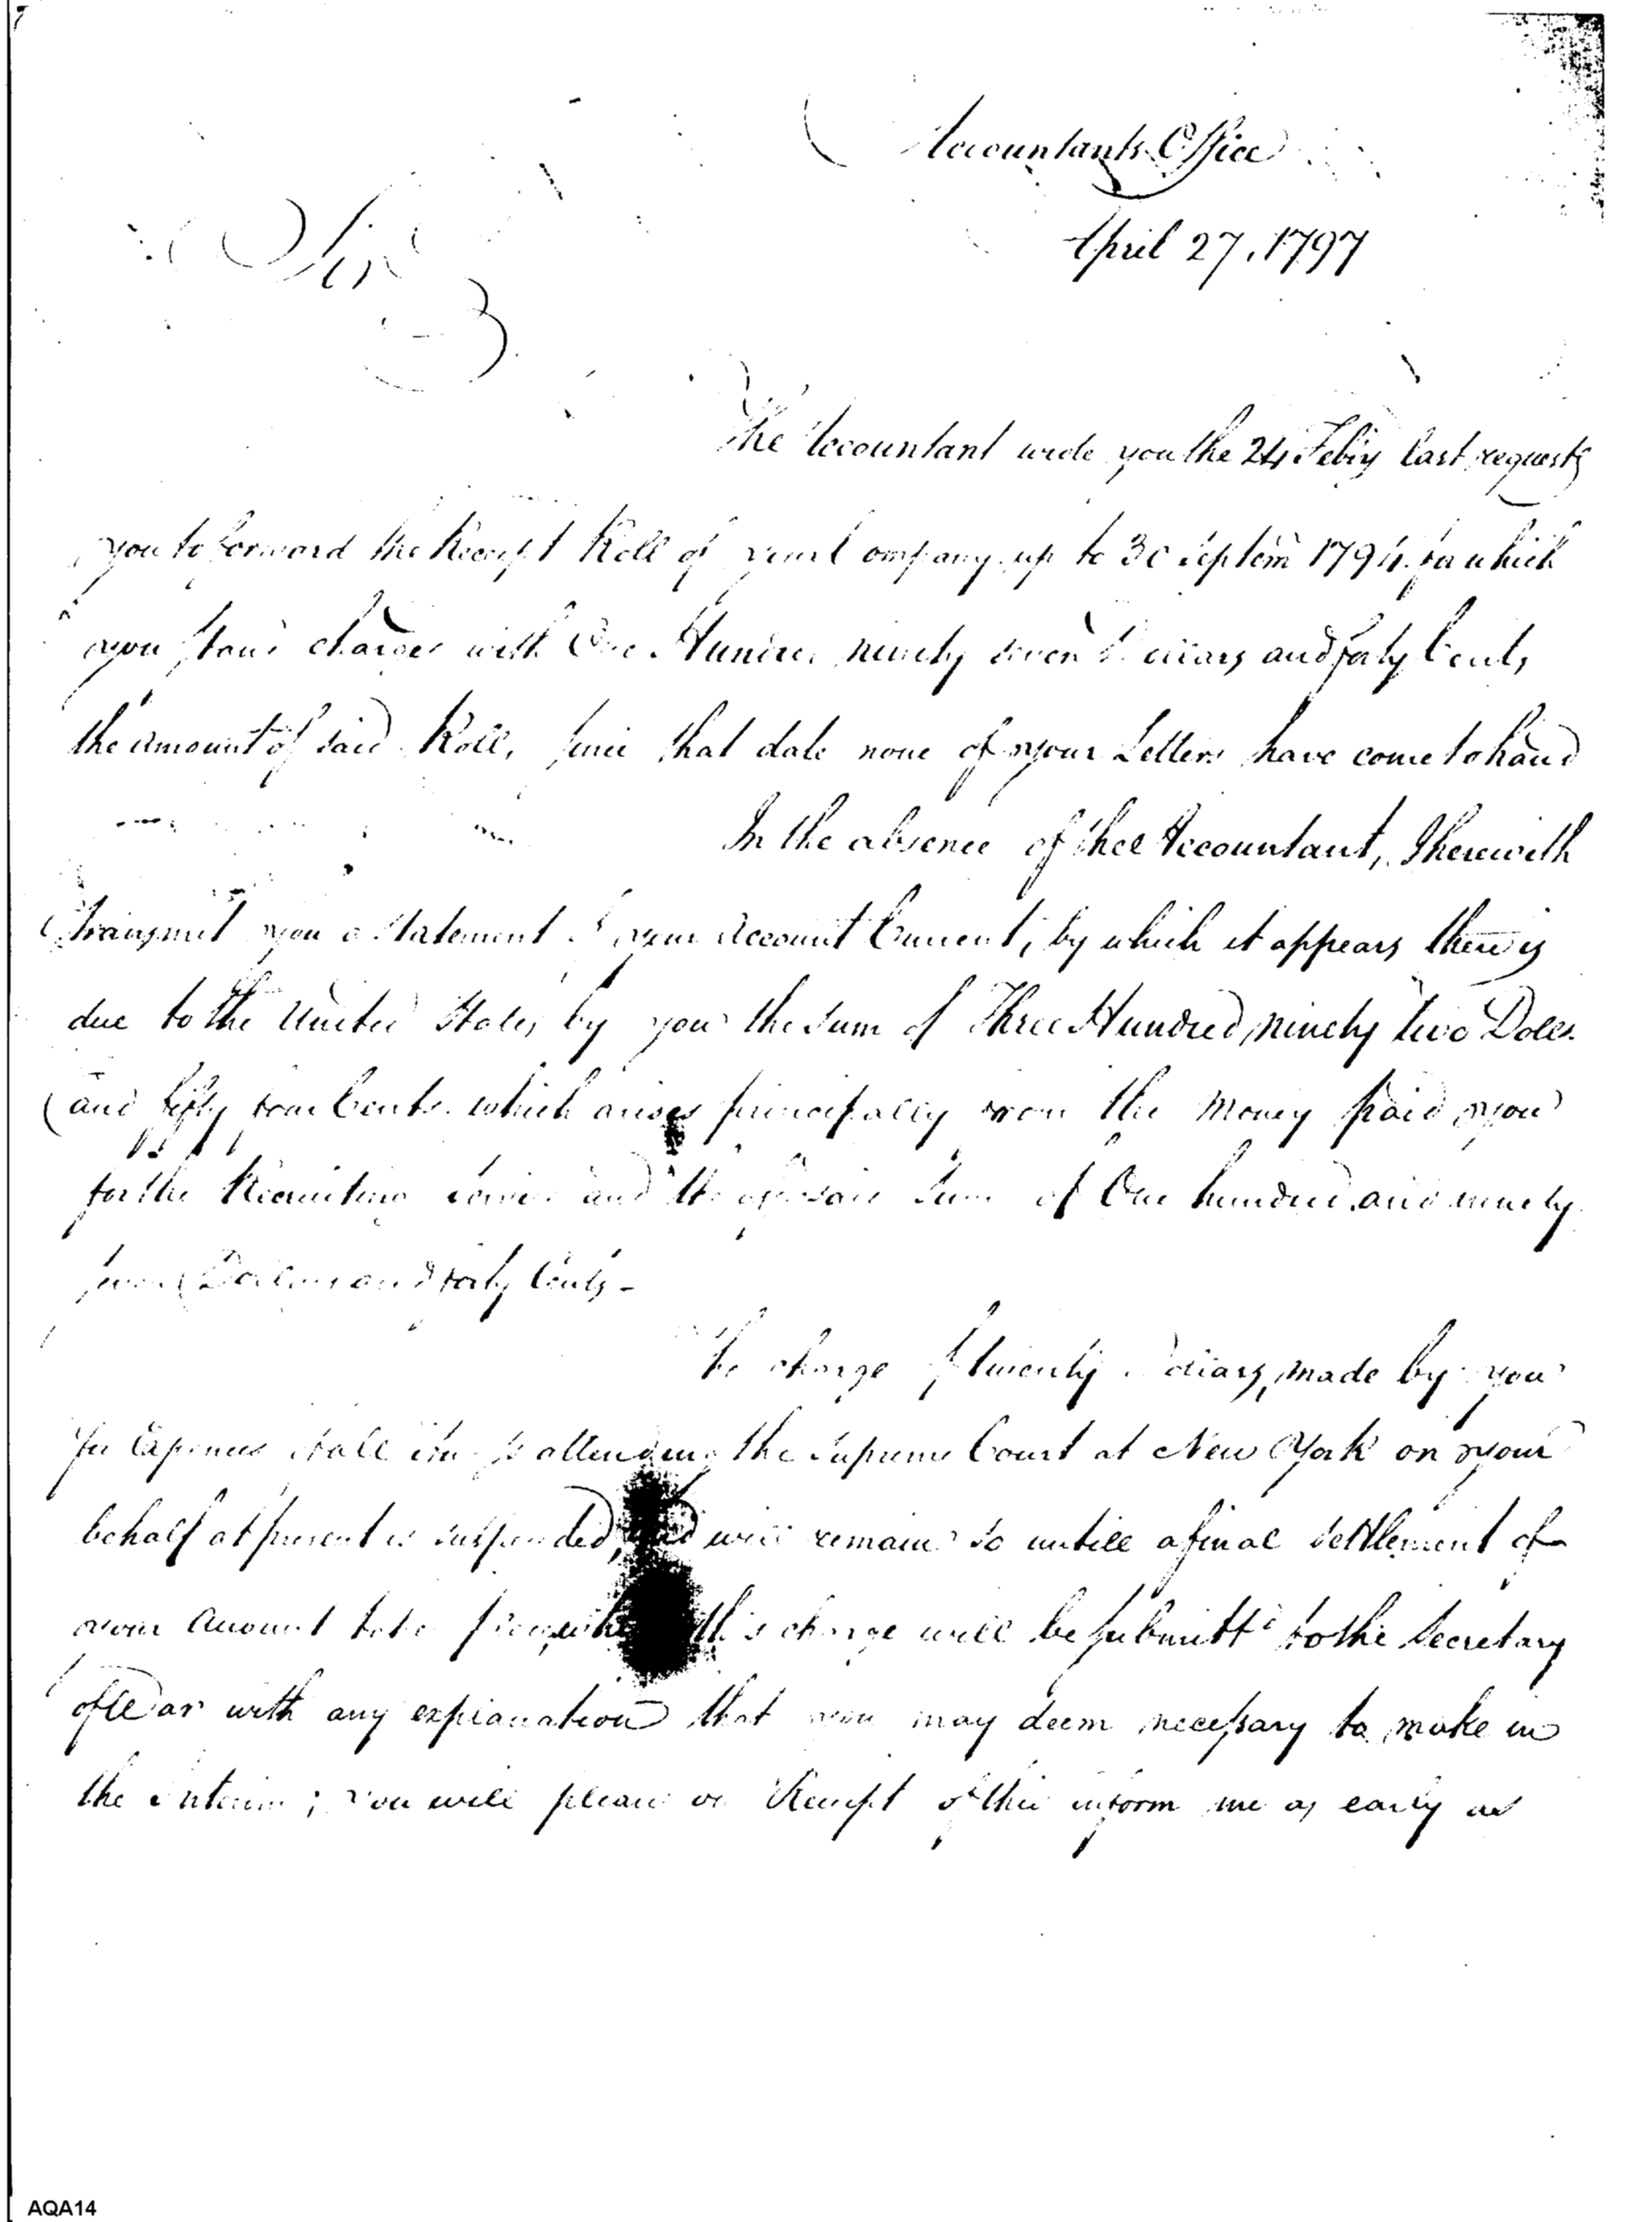 Accountants Office
April 27, 1797
Sir
The Accountant wrote you the 24 Febry last requestg
you to forward the Receipt Roll of your Company up to 30 Septem 1794 for which
you stand charged with One Hundred ninety seven Dollars and forty Cents,
the amount of said Roll, since that date none of your Letters have come to hand
In the absence of thee Accountant, I herewith
transmit you a Statement of your Account Current, by which it appears there is
due to the United States by you the sum of Three Hundred, ninety two Dolls.
and fifty four Cents. which arises principally from the Money paid you
for the Recruiting service and the aforesaid Sum of One hundred and ninety
seven Dollars and forty Cents -
The charge of twenty Dollars, made by you
for Expences attending the Supreme Court at New York on your
behalf at present is suspended, and will remain so untill a final Settlement of
your Account this charge will be submittd to the Secretary
of War with any explanation that you may deem necessary to make in
the interim; You will please on Receipt of this inform me as early as
AQA14